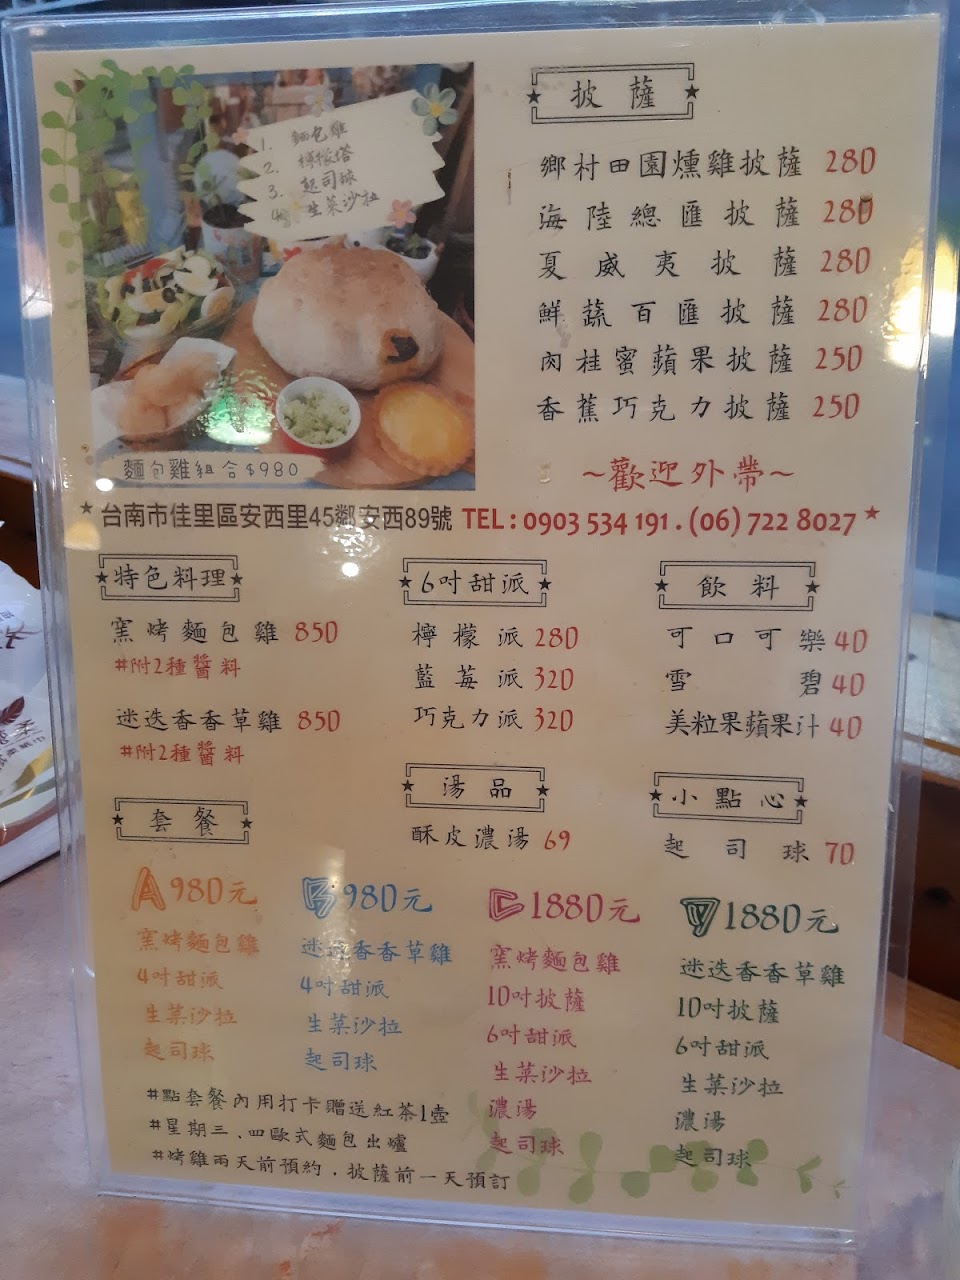 1. 麵包雞
2. 檸檬塔
3. 起司球
4. 生菜沙拉
麵包雞組合$980
披薩
鄉村田園燻雞披薩 280
海陸總匯披薩 280
夏威夷披薩 280
鮮蔬百匯披薩 280
肉桂蜜蘋果披薩 250
香蕉巧克力披薩 250
~歡迎外帶~
台南市佳里區安西里45鄰安西89號 TEL : 0903 534 191 . (06) 722 8027
特色料理
窯烤麵包雞 850
#附2種醬料
迷迭香香草雞 850
#附2種醬料
6吋甜派
檸檬派 280
藍莓派 320
巧克力派 320
飲料
可口可樂 40
雪碧 40
美粒果蘋果汁 40
湯品
酥皮濃湯 69
小點心
起司球 70
套餐
A 980元
窯烤麵包雞
4吋甜派
生菜沙拉
起司球
B 980元
迷迭香香草雞
4吋甜派
生菜沙拉
起司球
C 1880元
窯烤麵包雞
10吋披薩
6吋甜派
生菜沙拉
濃湯
起司球
D 1880元
迷迭香香草雞
10吋披薩
6吋甜派
生菜沙拉
濃湯
起司球
#點套餐內用打卡贈送紅茶1壺
#星期三、四歐式麵包出爐
#烤雞兩天前預約．披薩前一天預訂